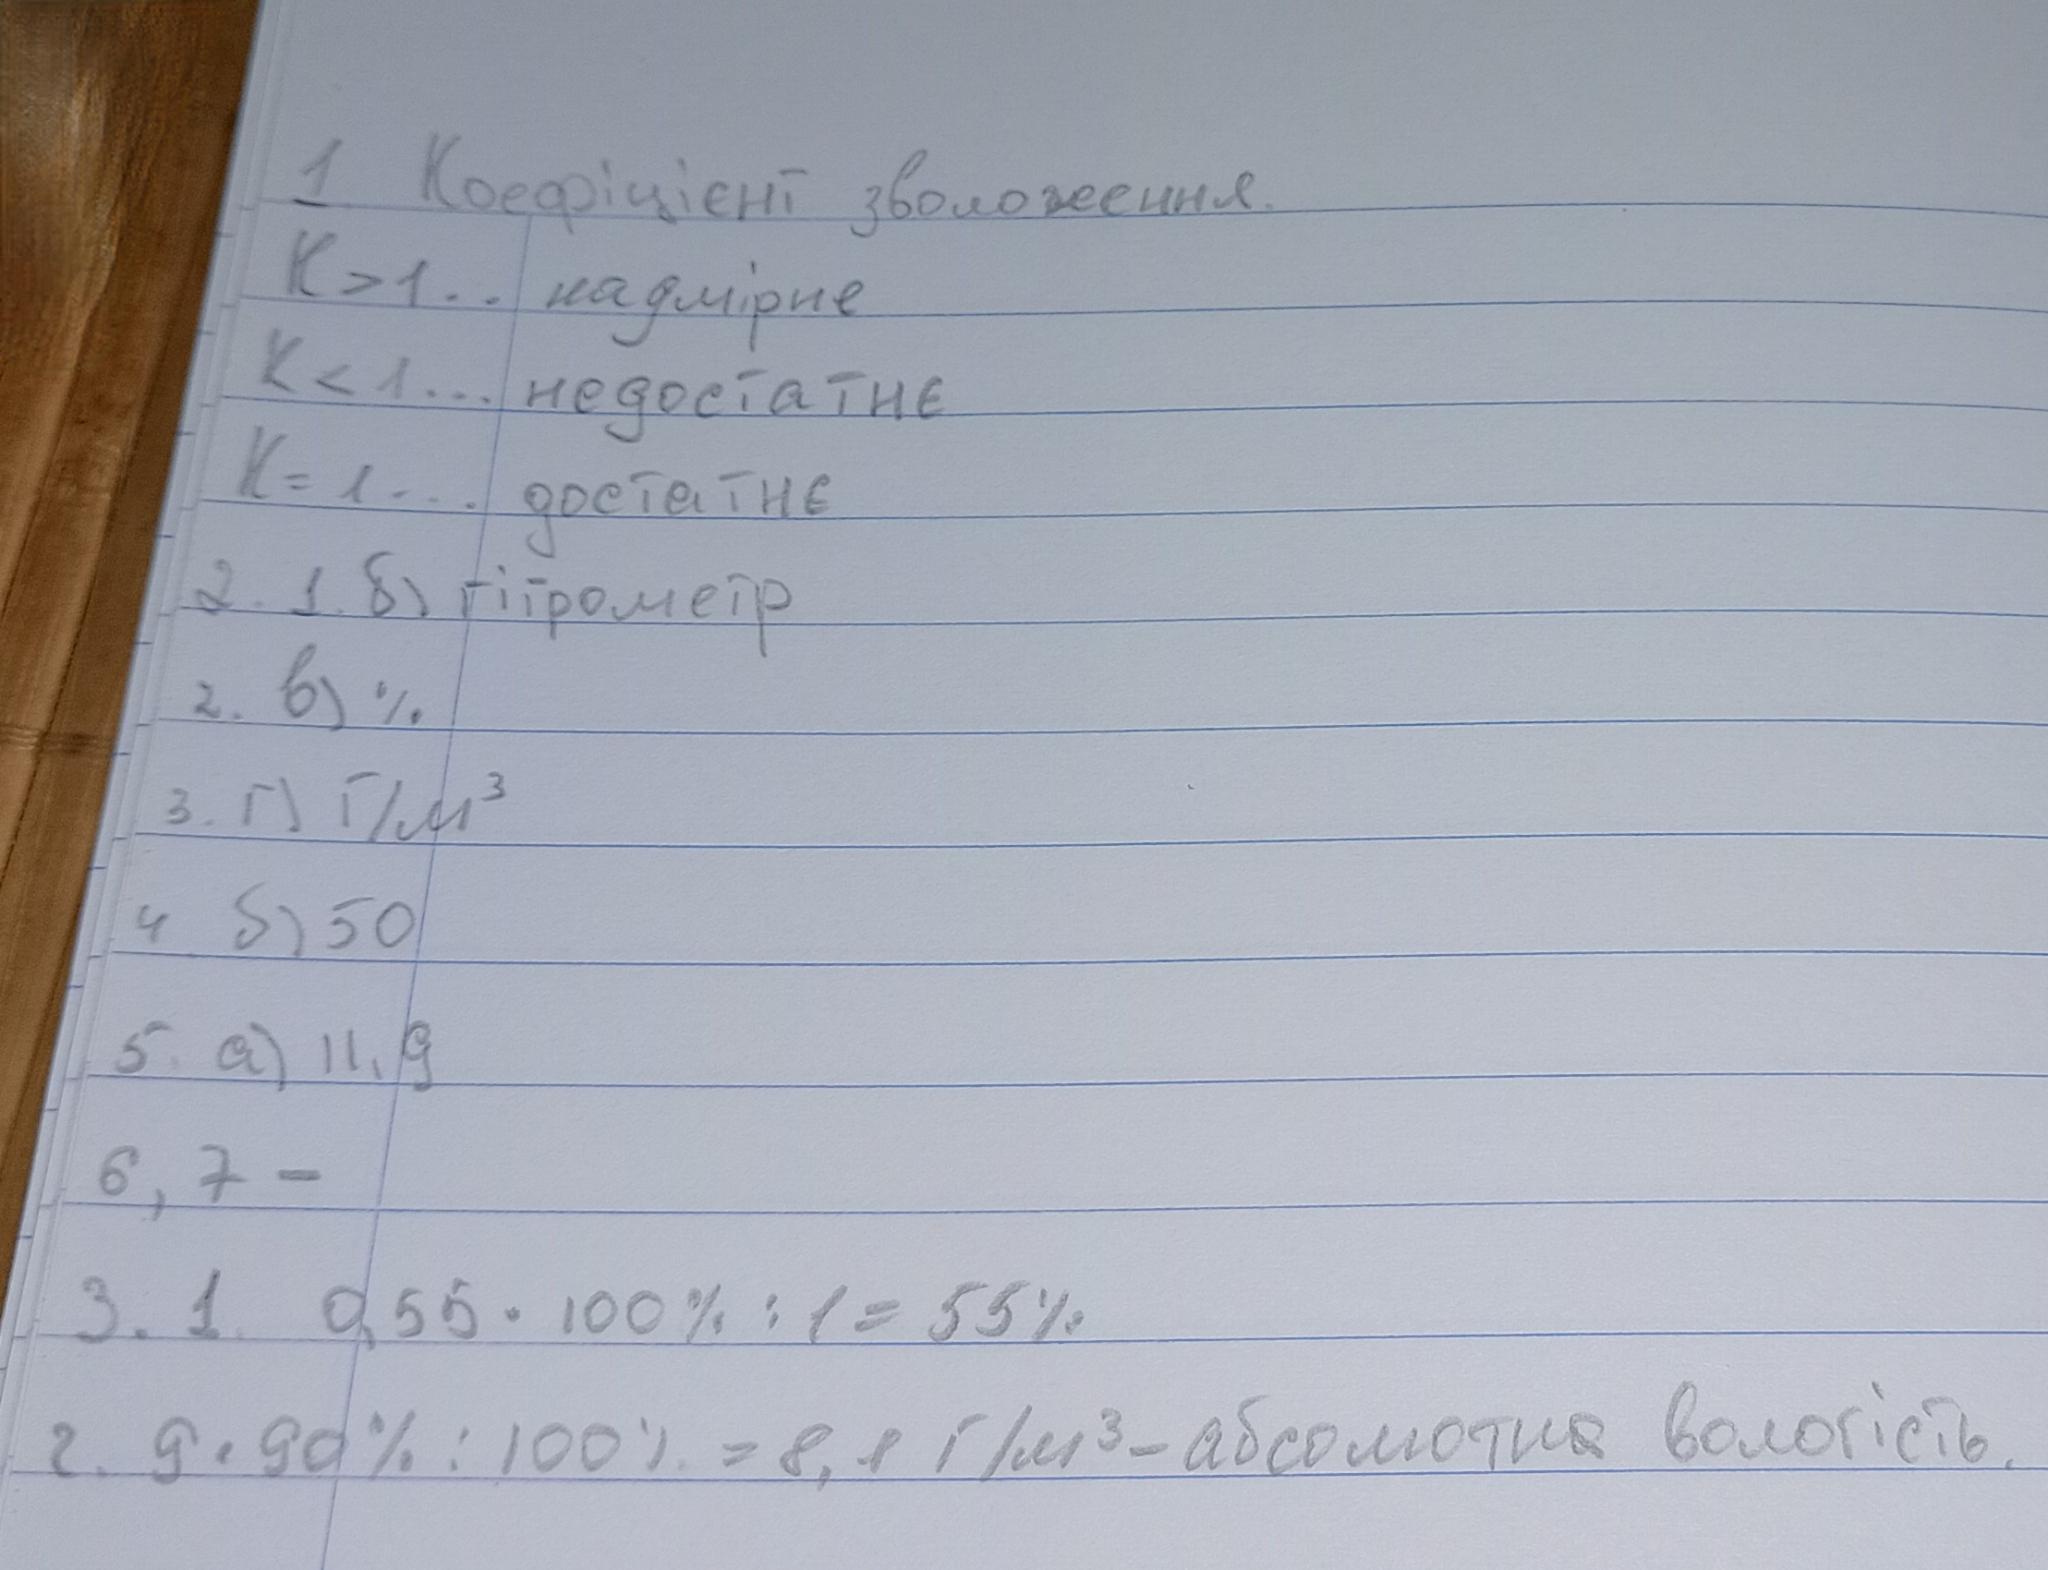 1 Коефіцієнт зволоження.
К>1... надмірне
К<1... недостатнє
К=1.... достатнє
2. 1. б) гігрометр
2. в) %
3. г) г/м³
4 б) 50
5. а) 11.9
6, 7 –
3. 1. 0,55 • 100% : 1 = 55%
2. 9 • 90% : 100% = 8,1 г/м³ – абсолютна вологість.